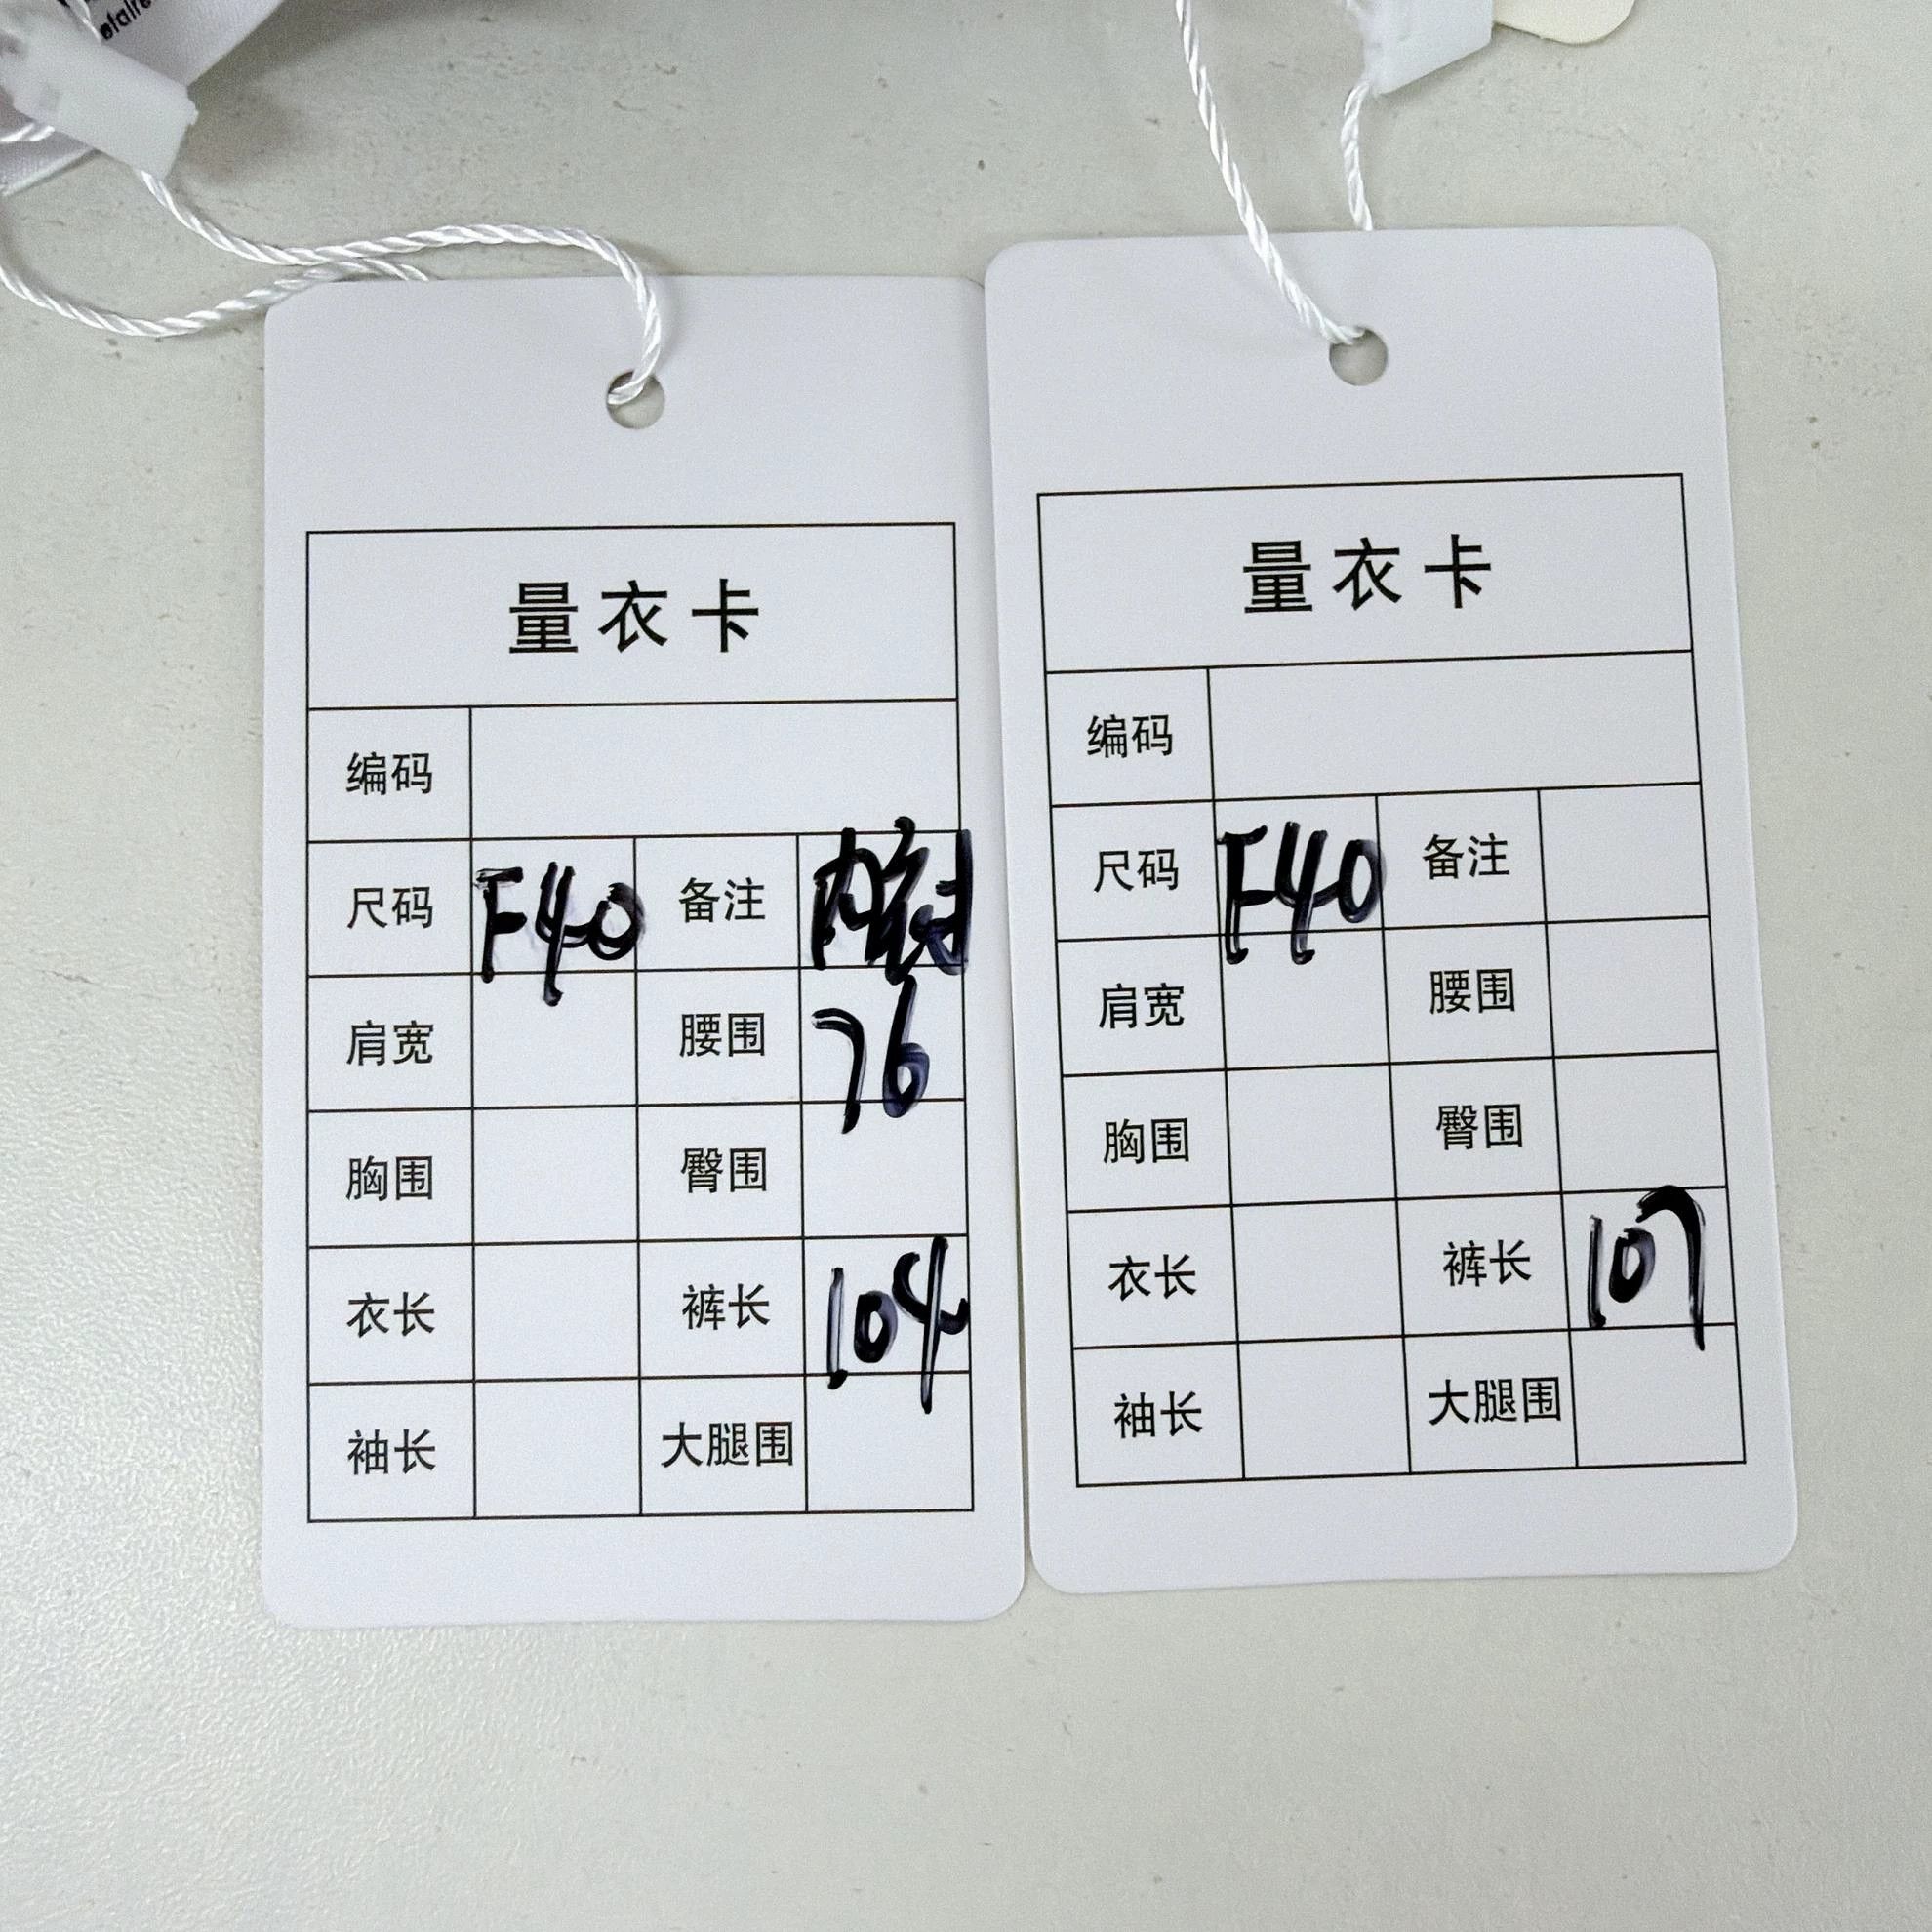 efaire
量衣卡
编码
尺码 F40 备注 内衬
肩宽 腰围 76
胸围 臀围
衣长 裤长 104
袖长 大腿围
量衣卡
编码
尺码 F40 备注
肩宽 腰围
胸围 臀围
衣长 裤长 107
袖长 大腿围